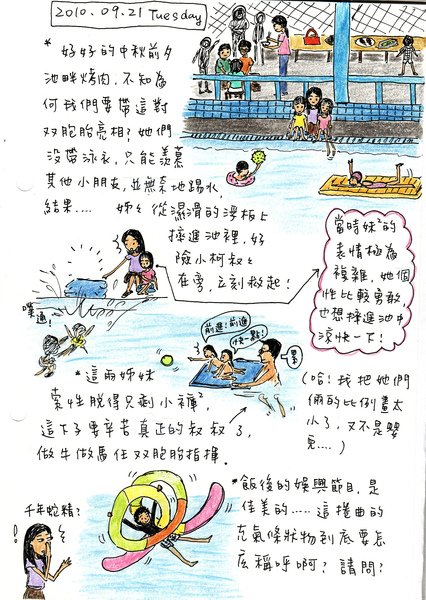 2010.09.21 Tuesday
* 好好的中秋前夕
池畔烤肉,不知為
何我們要帶這對
双胞胎亮相?她們
沒帶泳衣,只能羨慕
其他小朋友,並無奈地踢水,
結果.... 姊々從濕滑的浮板上
摔進池裡,好
險小柯叔々
在旁,立刻救起!
噗通!
當時妹²的
表情極為
複雜,她個
性比較勇敢,
也想摔進池中
涼快一下!
前進!前進
快一點!
累
* 這兩姊妹
索性脫得只剩小褲²,
這下子要辛苦真正的叔叔了,
做牛做馬任双胞胎指揮.
(哈!我把她們
倆的比例畫太
小了,又不是嬰
兒....)
千年蛇精?
* 飯後的娛興節目,是
佳美的..... 這捲曲的
充氣條狀物到底要怎
麼稱呼啊? 請問?